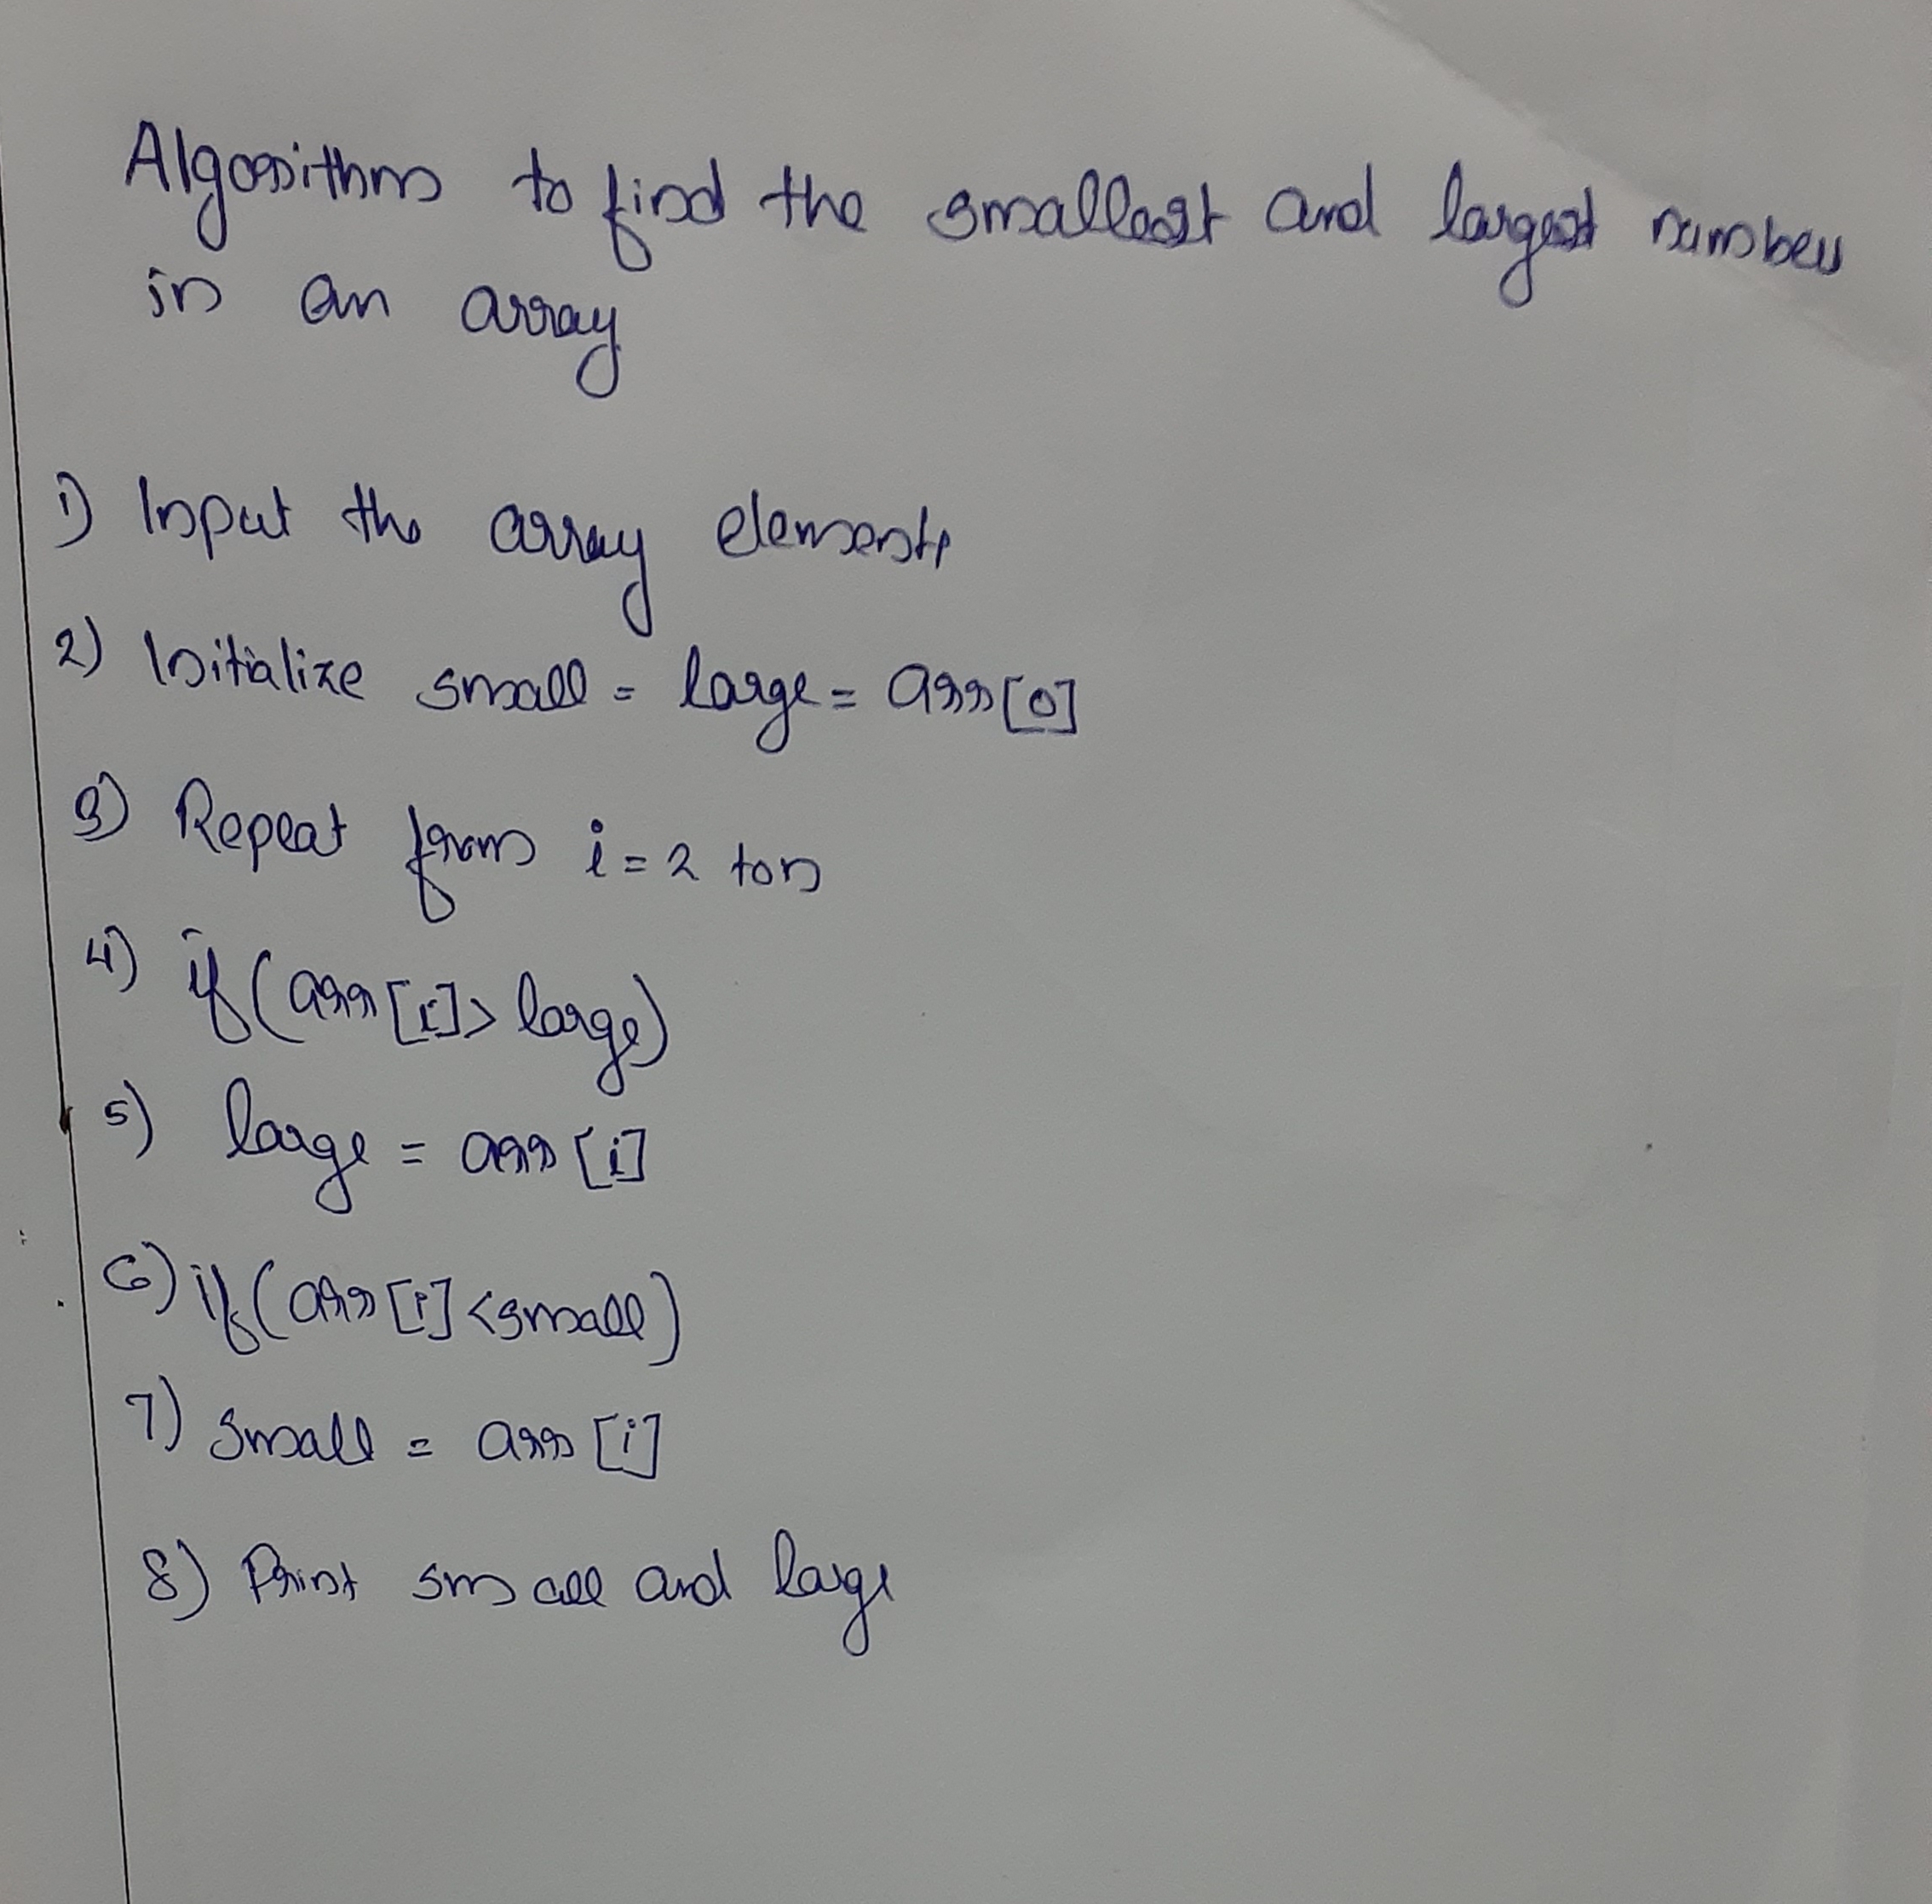 Algorithm to find the smallest and largest number
in an array
1) Input the array elements
2) Initialize small = large = arr[0]
3) Repeat from i = 2 to n
4) if (arr[i] > large)
5) large = arr[i]
6) if (arr[i] < small)
7) small = arr[i]
8) Print small and large